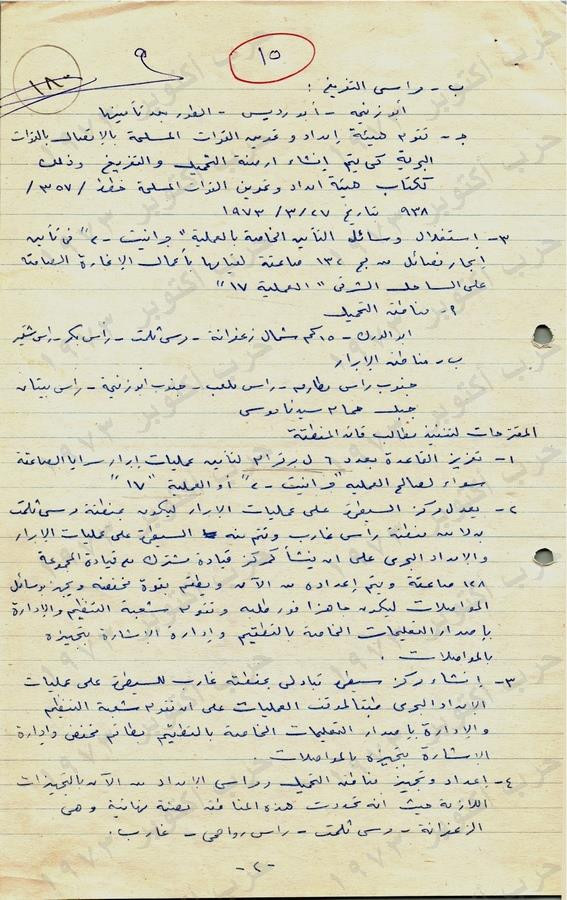 ١٥
١٨٠
ب - مراسى التفريغ :
أبو زنيمة - أبو رديس - الطور بعد تأمينها
جـ - تقوم هيئة إمداد وتموين القوات المسلحة بالإتصال بالقوات
البحرية كى يتم إنشاء أرصفة التحميل والتفريغ وذلك
كتاب هيئة امداد وتموين القوات المسلحة خطط / ٣٥٧ /
٩٣٨ بتاريخ ٢٧ / ٣ / ١٩٧٣
٣ - إستغلال وسائل التأمين الخاصة بالعملية " جرانيت - ٢ " فى تأمين
ابحار فصائل من مج ١٣٢ صاعقة لقيامها بأعمال الإغارة الصامتة
على الساحل الشرقى " العملية ١٧ "
٢ - مناطق التحميل
ابو الدرك - ١٥ كم شمال زعفرانة - مرسى ثلمت - راس بكر - راس شقير
ب - مناطق الإبرار
جنوب راس مطارمه - راس ملعب - جنوب ابو زنيمة - راس
جبل حمام سيدنا موسى
المقترحات لتنفيذ مطالب قائد المنطقة
١ - تعزيز القاعدة بعدد ٦ ل لتأمين عمليات إبرار سرايا الصاعقة
سواء لصالح العملية " جرانيت - ٢ " أو العملية " ١٧ "
٢ - يعدل مركز السيطرة على عمليات الإبرار ليكون بمنطقة مرسى ثلمت
بدلا من منطقة راس غارب وتتم منه السيطرة على عمليات الإبرار
والإمداد البحرى على ان ينشأ كمركز قيادة مشترك مع قيادة المجموعة
١٢٨ صاعقة ويتم إعداده من الآن ويطقم بقوة مخفضة ويجهز بوسائل
المواصلات ليكون جاهزا فور طلبه وتقوم شعبة التنظيم والإدارة
بإصدار التعليمات الخاصة بالتطقيم وإدارة الإشارة بتجهيزه
بالمواصلات .
٣ - إنشاء مركز سيطرة تبادلى بمنطقة غارب للسيطرة على عمليات
الإمداد البحرى طبقا لموقف العمليات على ان تقوم شعبة التنظيم
والإدارة بإصدار التعليمات الخاصة بالتطقيم بطاقم مخفض وإدارة
الإشارة بتجهيزه بالمواصلات .
٤ - إعداد وتجهيز مناطق التحميل ومراسى الإمداد من الآن بالتجهيزات
اللازمة حيث انه تحددت هذه المناطق بصفة نهائية وهى
الزعفرانة - مرسى ثلمت - راس رواحمى - غارب .
- ٢ -
حرب أكتوبر ١٩٧٣